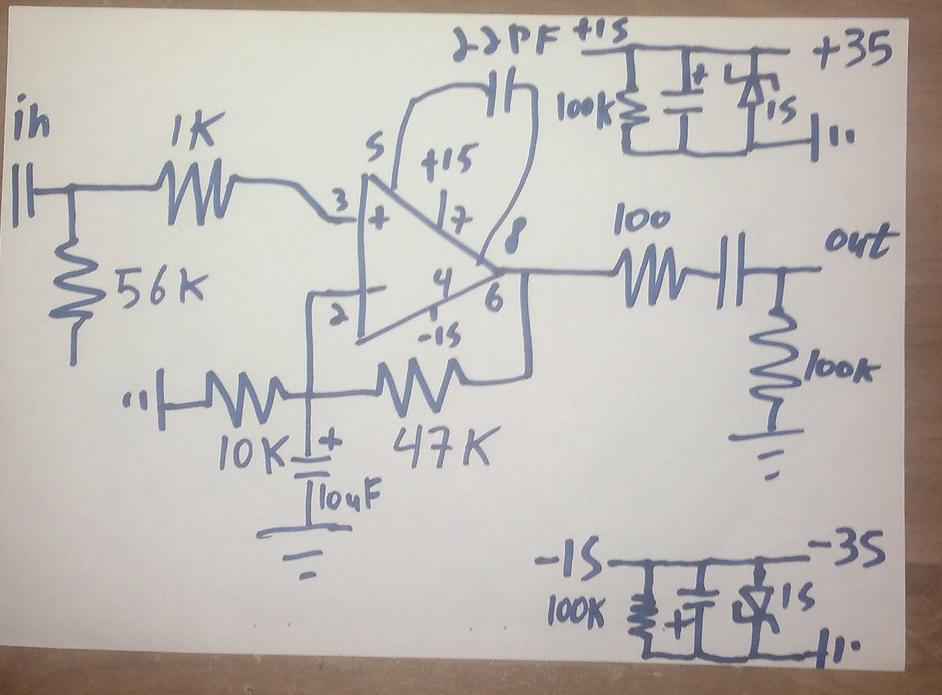 22PF +15 +35
in
1K
100K + 15
5 +15
3 + 7 8
100
out
56K
2 4 6
-15
100K
10K + 47K
10uF
-15 -35
100K + 15